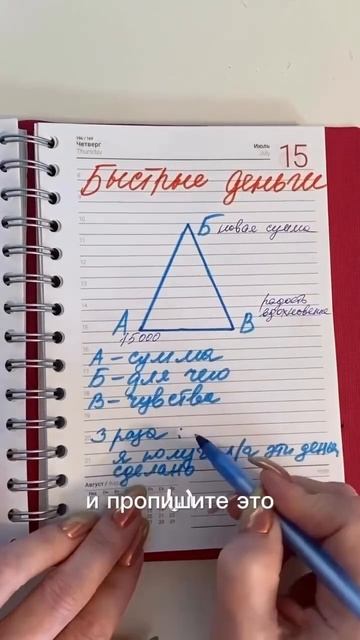 194 / 169
Четверг
Thursday
Июль
July
15
Быстрые деньги
Б новая сумма
радость
вдохновение
А
15000
В
А – сумма
Б – для чего
В – чувства
3 раза :
я эти
сделано
и пропишите это
Август